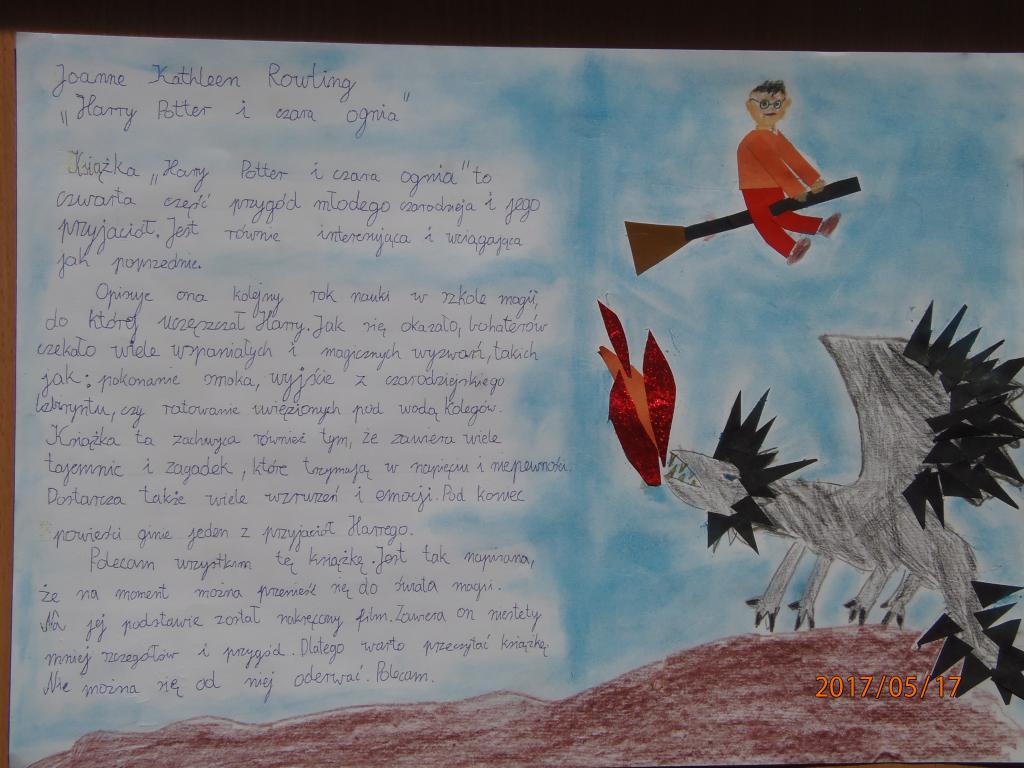 Joanne Kathleen Rowling
„Harry Potter i czara ognia"
Książka „Harry Potter i czara ognia" to
czwarta część przygód młodego czarodzieja i jego
przyjaciół. Jest równie interesująca i wciągająca
jak poprzednie.
Opisuje ona kolejny rok nauki w szkole magii,
do której uczęszczał Harry. Jak się okazało, bohaterów
czekało wiele wspaniałych i magicznych wyzwań, takich
jak: pokonanie smoka, wyjście z czarodziejskiego
labiryntu, czy ratowanie uwięzionych pod wodą kolegów.
Książka ta zachwyca również tym, że zawiera wiele
tajemnic i zagadek, które trzymają w napięciu i niepewności.
Dostarcza także wiele wzruszeń i emocji. Pod koniec
powieści ginie jeden z przyjaciół Harrego.
Polecam wszystkim tę książkę. Jest tak napisana,
że na moment można przenieść się do świata magii.
Na jej podstawie został nakręcony film. Zawiera on niestety
mniej szczegółów i przygód. Dlatego warto przeczytać książkę
Nie można się od niej oderwać. Polecam.
2017/05/17